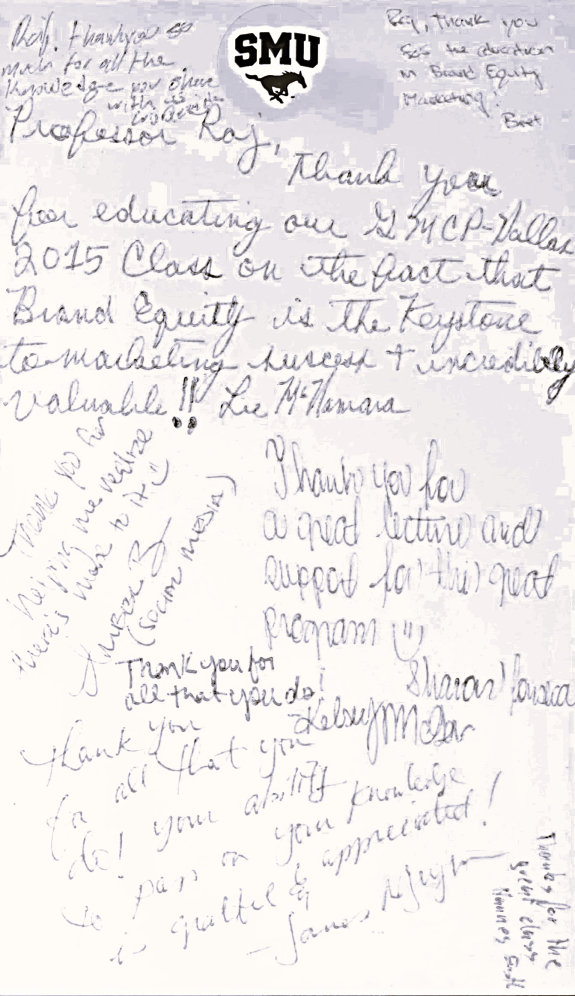 Raj! Thank you so
much for all the
knowledge you share
with us
SMU
Raj, Thank you
for the education
in Brand Equity
Marketing!
Professor Raj,
Thank you
for educating our GMCP-Dallas
2015 Class on the fact that
Brand Equity is the Keystone
to marketing success + incredibly
valuable!! Liz McNamara
Thank you for
helping me realize
there's more to it :)
Amber B
(SOCIAL MEDIA)
Thank you for
a great lecture and
support for this great
program :)
Sharon Fonseca
Thank you for
all that you do!
Kelsey
Thank you
for all that you
do! Your ability
to pass on your knowledge
is grateful & appreciated!
- James Nguyen
Thanks for the
great class